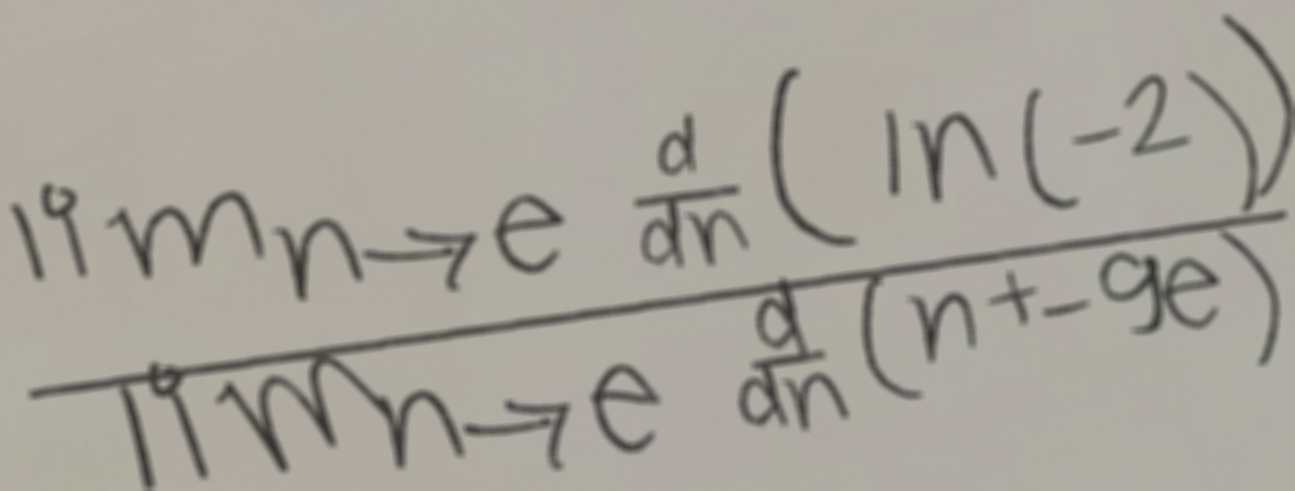 lim n→e d/dn (ln(-2))
lim n→e d/dn (n+-9e)